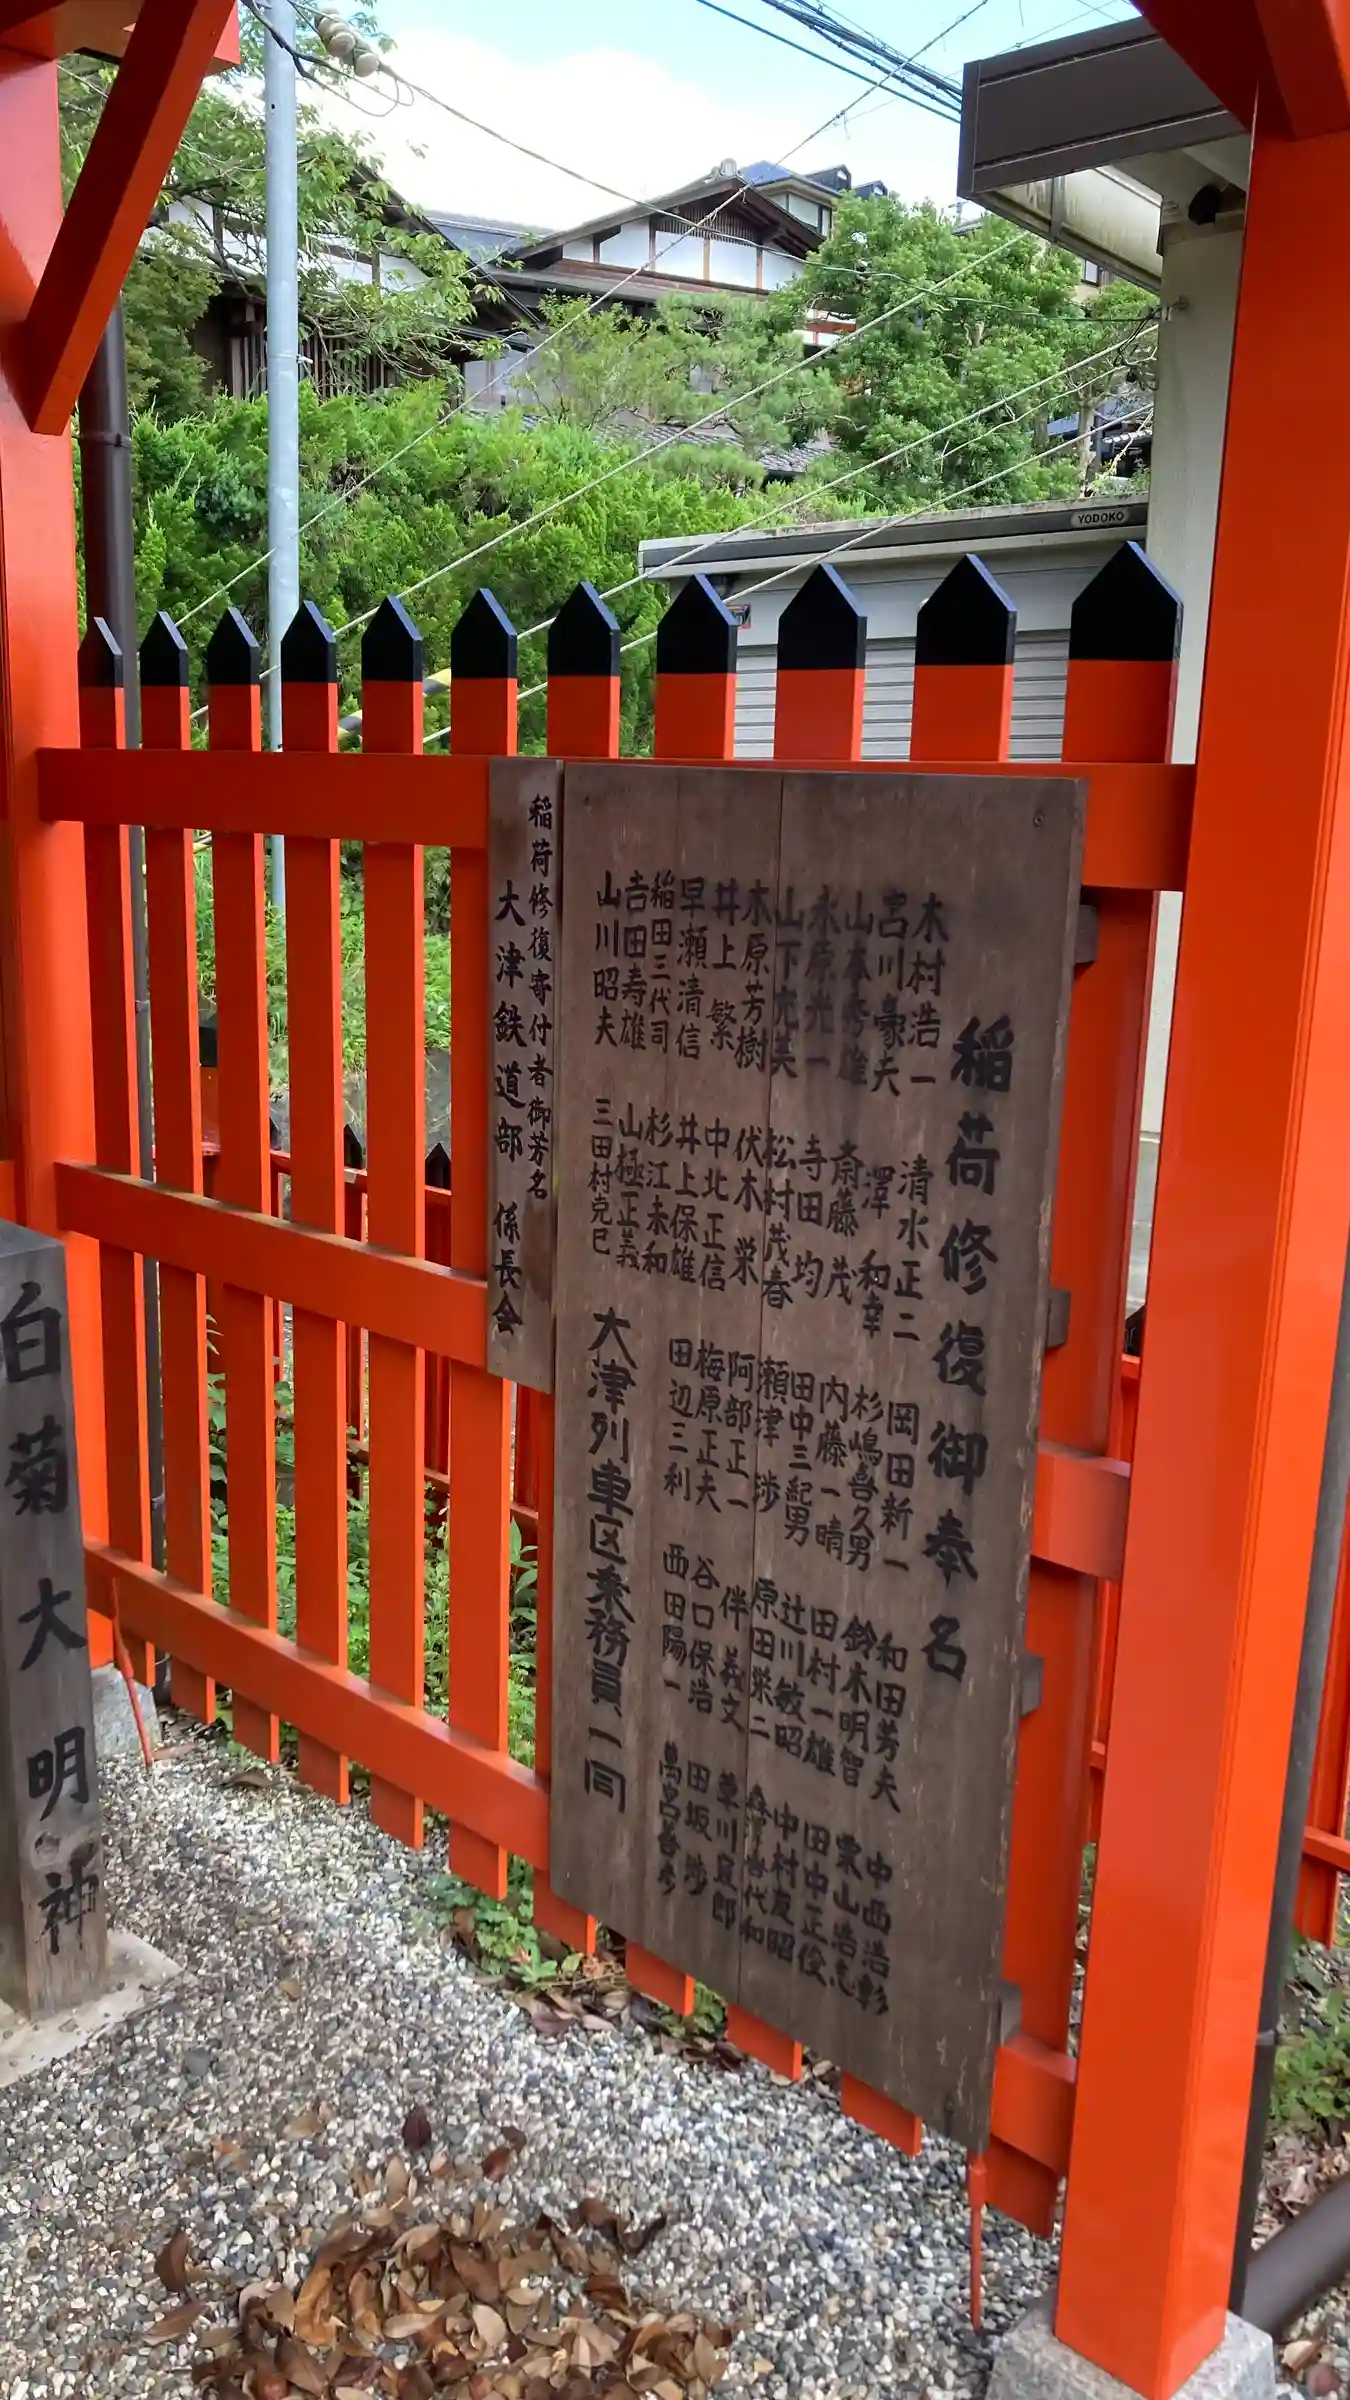 YODOKO
稲荷修復御奉名
木村浩一 清水正二 岡田新一 和田芳夫 中西浩彰
宮川豪夫 澤和幸 杉嶋喜久男 鈴木明智 栗山浩志
山本秀雄 斎藤茂 内藤一晴 田村一雄 田中正俊
永原光一 寺田均 田中三紀男 辻川敏昭 中村友昭
山下充美 松村茂春 瀬津渉 原田栄二 森澤喜代和
木原芳樹 伏木栄 阿部正一 伴義文 草川宜郎
井上繁 中北正信 梅原正夫 谷口保浩 田坂渉
早瀬清信 井上保雄 田辺三利 西田陽一
稲田三代司 杉江未和
吉田寿雄 山極正義
山川昭夫 三田村克巳 大津列車区乗務員一同
稲荷修復寄付者御芳名
大津鉄道部 係長会
白菊大明神